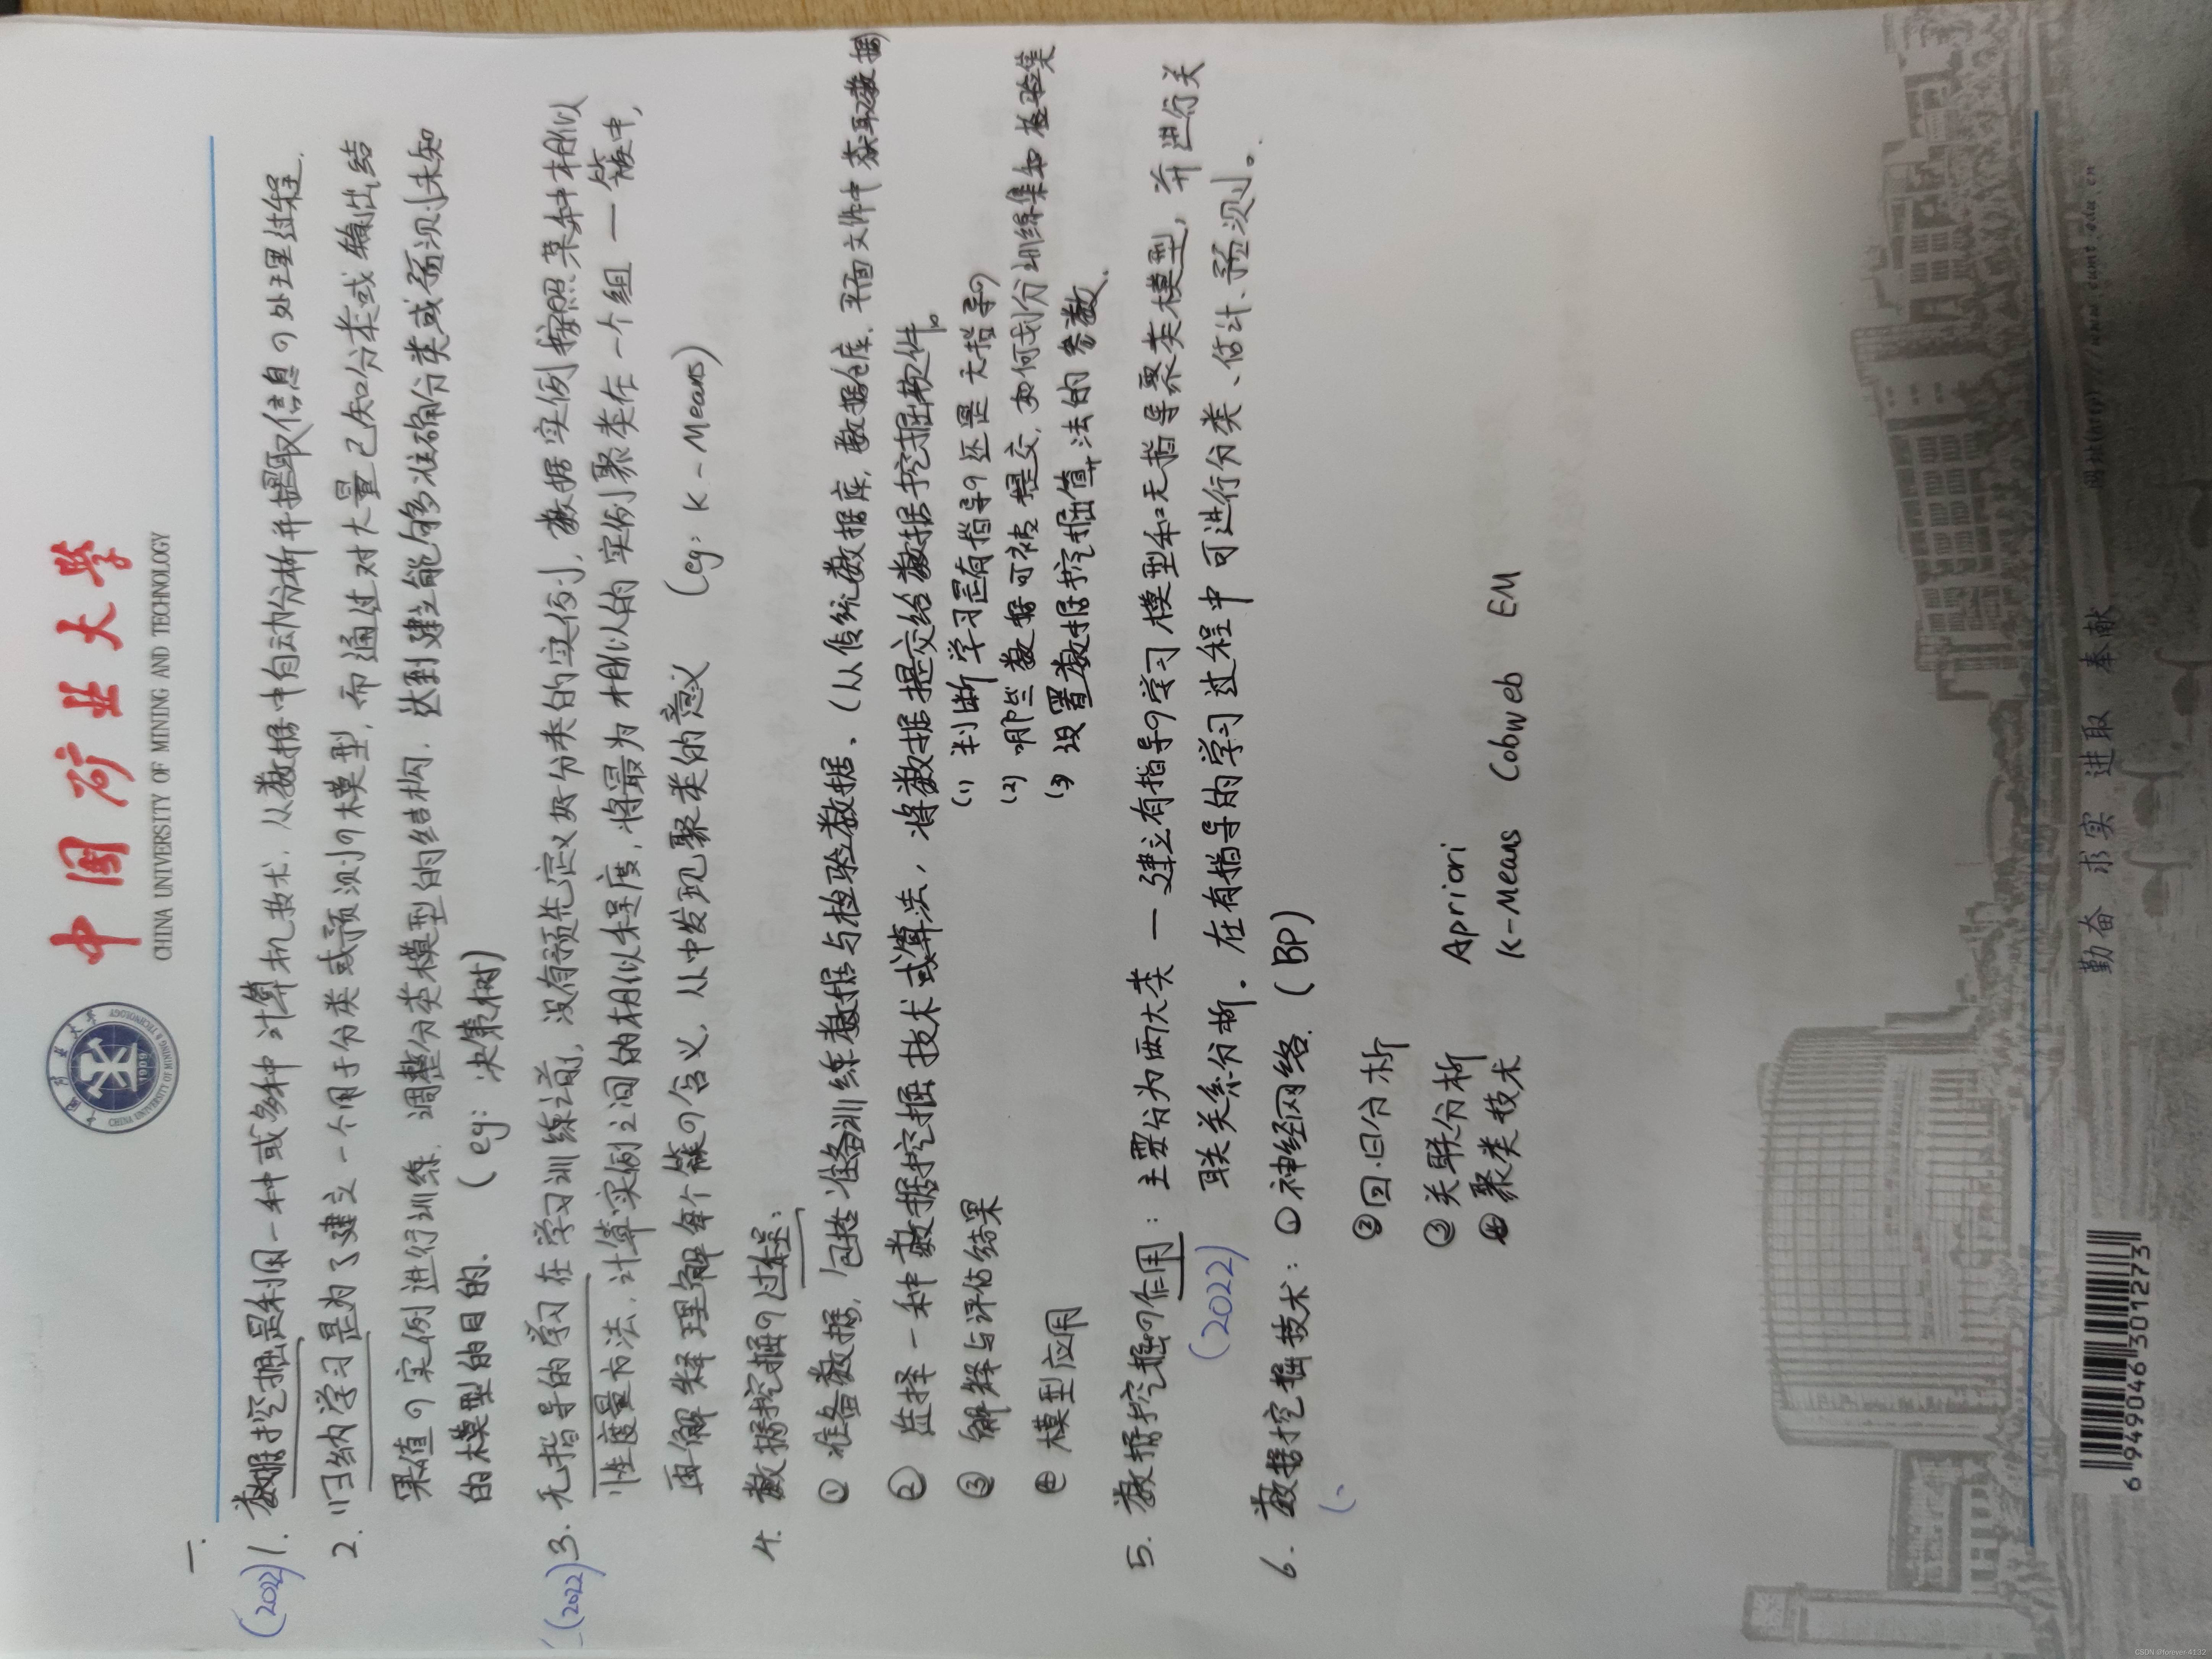 中国矿业大学
CHINA UNIVERSITY OF MINING AND TECHNOLOGY
一.
(2022) 1. 数据挖掘是利用一种或多种计算机技术，从数据中自动分析并提取信息的处理过程.
2. 归纳学习是为了建立一个用于分类或预测的模型，而通过对大量已知分类或输出结
果值的实例进行训练，调整分类模型的结构，达到建立能够准确分类或预测未知
的模型的目的. (eg: 决策树)
(2022) 3. 无指导的学习在学习训练之前，没有预先定义好分类的实例，数据实例按照某种相似
性度量方法，计算实例之间的相似程度，将最为相似的实例聚类在一个组—簇中，
再解释理解每个簇的含义，从中发现聚类的意义 (eg: K-Means)
4. 数据挖掘的过程:
① 准备数据，包括准备训练数据与检验数据、(从传统数据库，数据仓库，平面文件中获取数据)
② 选择一种数据挖掘技术或算法，将数据提交给数据挖掘软件。
(1) 判断学习是有指导的还是无指导的
(2) 哪些数据可被提交，如何划分训练集和检验集
(3) 设置数据挖掘算法的参数.
③ 解释与评估结果
④ 模型应用
5. 数据挖掘的作用: 主要分为两大类—建立有指导的学习模型和无指导聚类模型，并进行关
联关系分析. 在有指导的学习过程中可进行分类、估计、预测。
(2022)
6. 数据挖掘技术: ①神经网络. (BP)
②回归分析
③关联分析 Apriori
④聚类技术 K-Means Cobweb EM
勤奋 求实 进取 奉献
网址(http)://www.cumt.edu.cn
6949046301273
CSDN @forever 4132